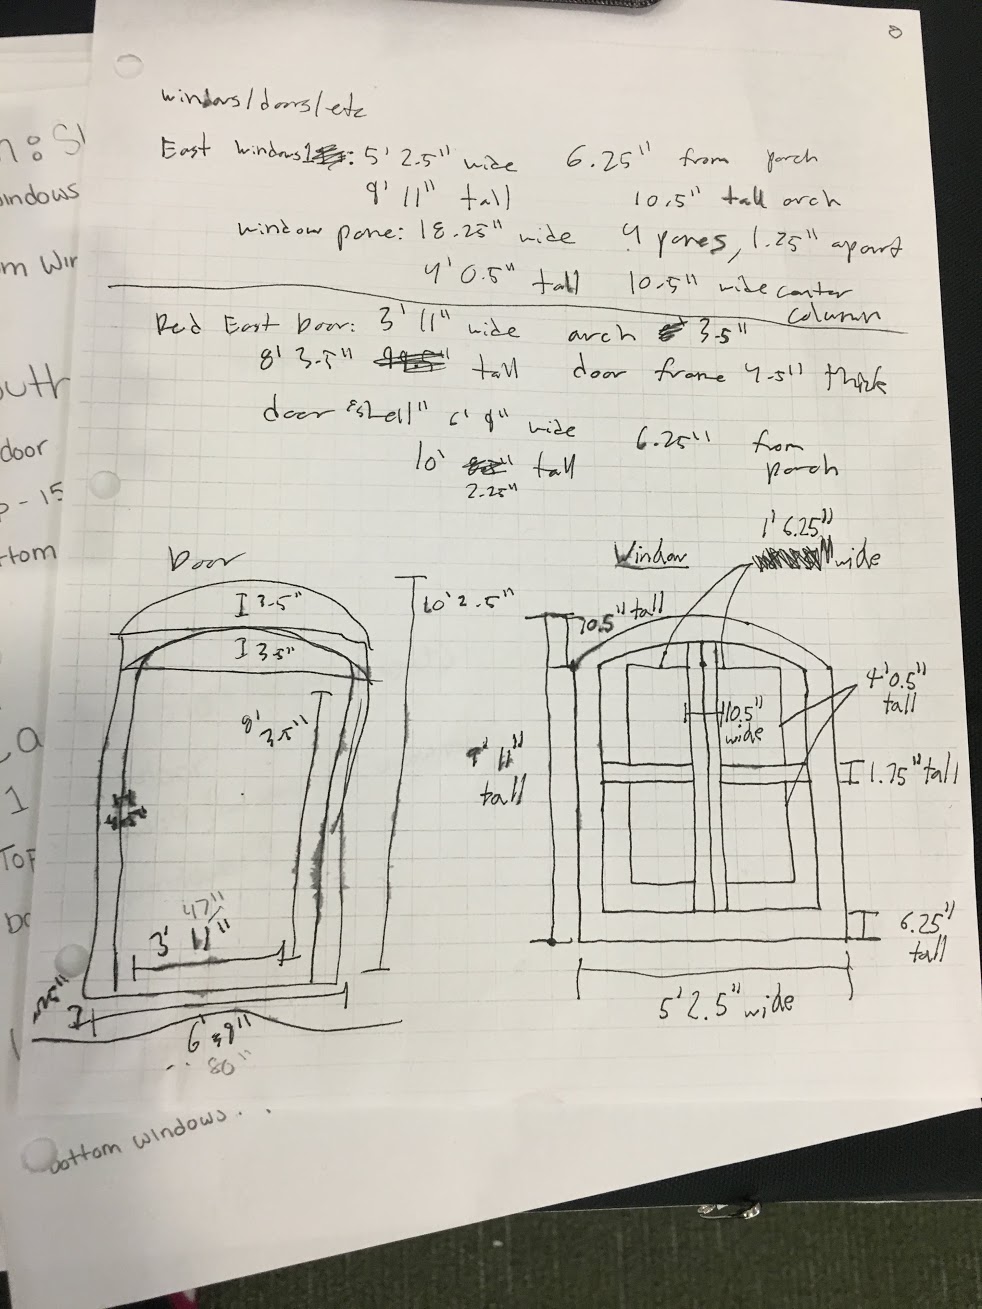 windows/doors/etc
East windows1: 5' 2.5" wide 6.25" from porch
9' 11" tall 10.5" tall arch
window pane: 18.25" wide 4 panes, 1.25" apart
4' 0.5" tall 10.5" wide center
column
Red East Door: 3' 11" wide arch 3.5"
8' 3.5" tall door frame 4.5" thick
door "shell" 6' 8" wide 6.25" from
10' tall porch
2.25"
Door
I 3.5"
I 3.5"
10' 2.5"
8'
3.5"
4.5"
47"
3' 11"
6' 8"
80"
Window
1' 6.25"
wide
10.5" tall
4' 0.5"
tall
10.5"
wide
9' 11"
tall
1.75" tall
6.25"
tall
5' 2.5" wide
bottom windows..
indows
m Wir
door
- 15
ttom
1
Top